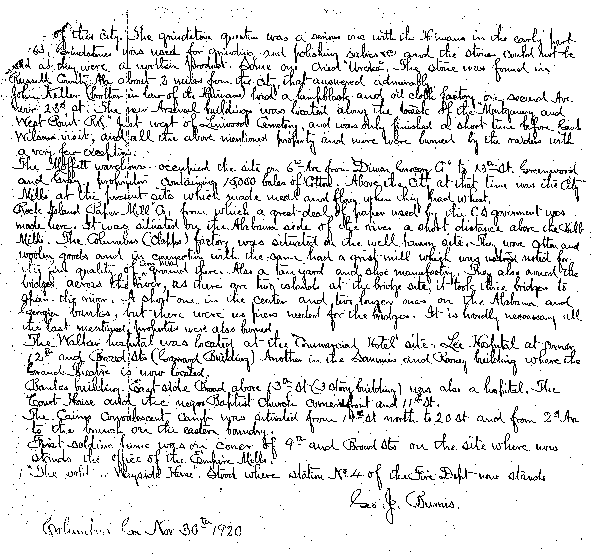 of this City. The grindstone question was a serious one with the Himans in the early part
Grindstones was used for grinding and polishing sabres &c and the stones could not be
as they were a northern product. Some one tried "Urchie". The stone was found in
Russell County Ala about 2 miles from the City that answered admirably.
John Keller (brother in law of the Himans) had a lampblack and oil cloth factory on second Ave
near 23rd St. The new Arsenal buildings was located along the track of the Montgomery and
West Point RR. Just west of Linwood Cemetery, and was only finished a short time before
Wilsons visit, and all the above mentioned property and more were burned by the raiders with
a very few exceptions.
The warehouse occupied the site on 6th Ave from Dixon Grocery Co to 13th St. Greenwood
and proprietors containing 15,000 bales of Cotton. Above the City at that time was the City
Mills at the present site which made meal and flour when they had wheat.
Rock Island Paper Mill Co, from which a great deal of paper used by the C.S government was
made here. It was situated by the Alabama side of the river a short distance above the
Mills. The Columbus (Clapps) factory was situated on the well known site. They wove cotton and
woolen goods and in connection with the same had a grist mill which was noted for
its fine quality of corn meal ground there. Also a tan yard and shoe manufactory. They also owned the
bridges across the river, as there are two islands at the bridge site, it took three bridges to
span the river. A short one in the center and two longer ones on the Alabama and
Georgia banks, but there were no piers needed for the bridges. It is hardly necessary
the last mentioned properties were also burned.
The Walker hospital was located at the Commercial Hotel site. Lee Hospital at corner
12th and Broad Sts ( Building) Another in the Sammis and Rooney building where the
Grand Theatre is now located.
Banks building East side Broad above 13th St (3 story building) was also a hospital. The
Court House and the negro Baptist Church and 11th St.
The Camp Convalescent Camp was situated from 14th St north to 20 St and from 2nd Ave
to the branch on the eastern boundry.
First soldiers home was on corner of 9th and Broad Sts on the site where now
stands the office of the Empire Mills.
"The old Wayside Home" stood where station No. 4 of the Fire Dept now stands
Geo. J. Burris.
Columbus Ga Nov 30th 1920